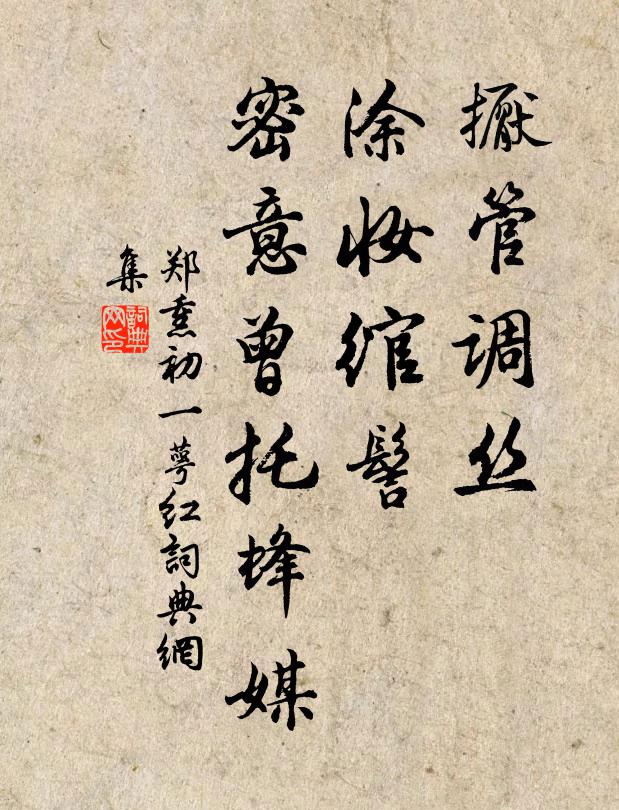 擫管调丝
涂妆绾髻
密意曾托蜂媒
郑熏初一萼红詞典網
集
詞典网印